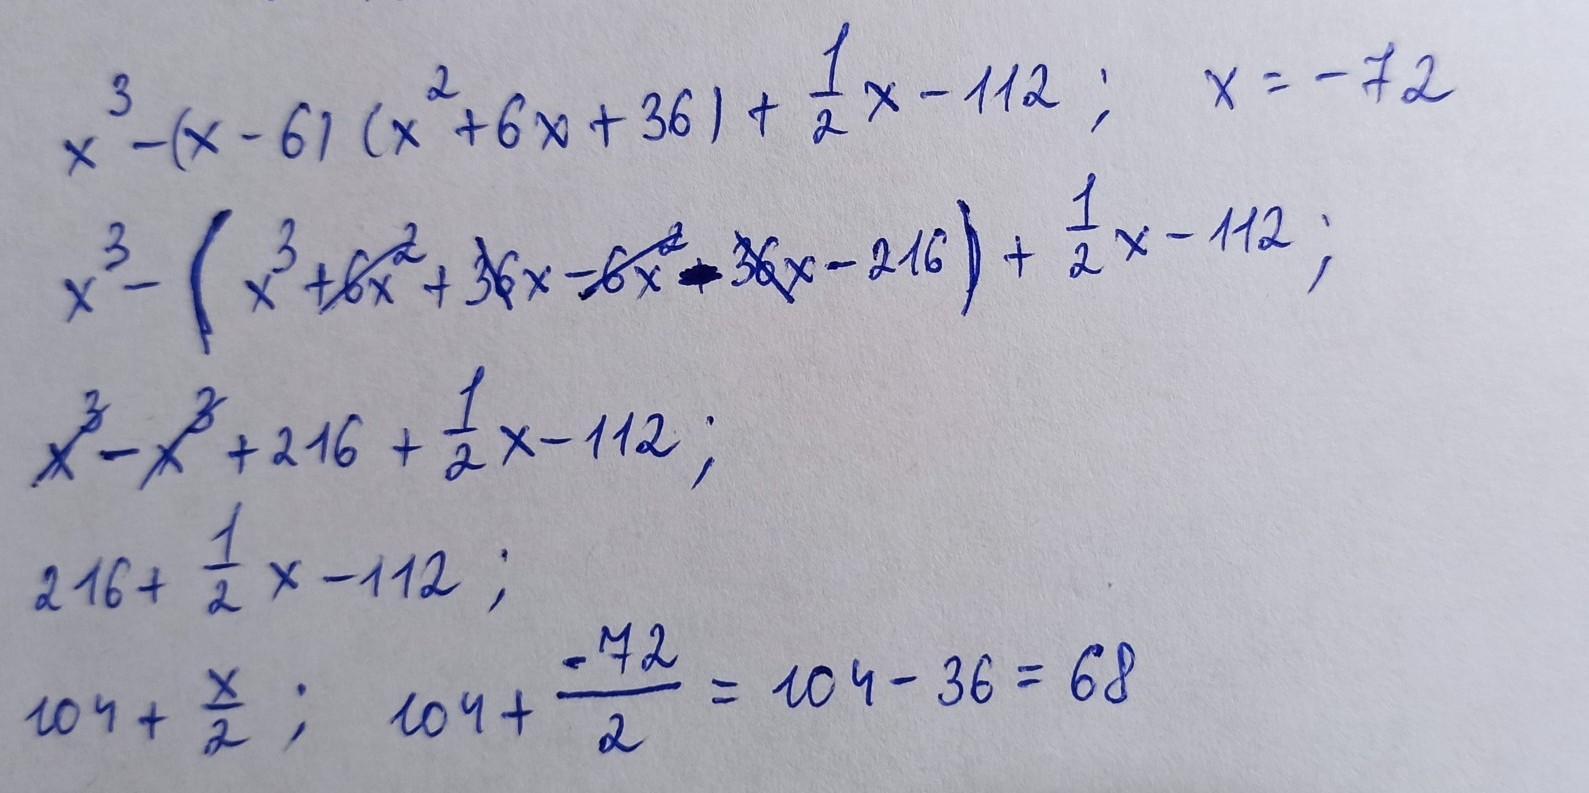 x³ - (x - 6) (x² + 6x + 36) + 1/2 x - 112 ; x = -72
x³ - ( x³ + 6x² + 36x - 6x² - 36x - 216 ) + 1/2 x - 112 ;
x³ - x³ + 216 + 1/2 x - 112 ;
216 + 1/2 x - 112 ;
104 + x/2 ; 104 + -72/2 = 104 - 36 = 68